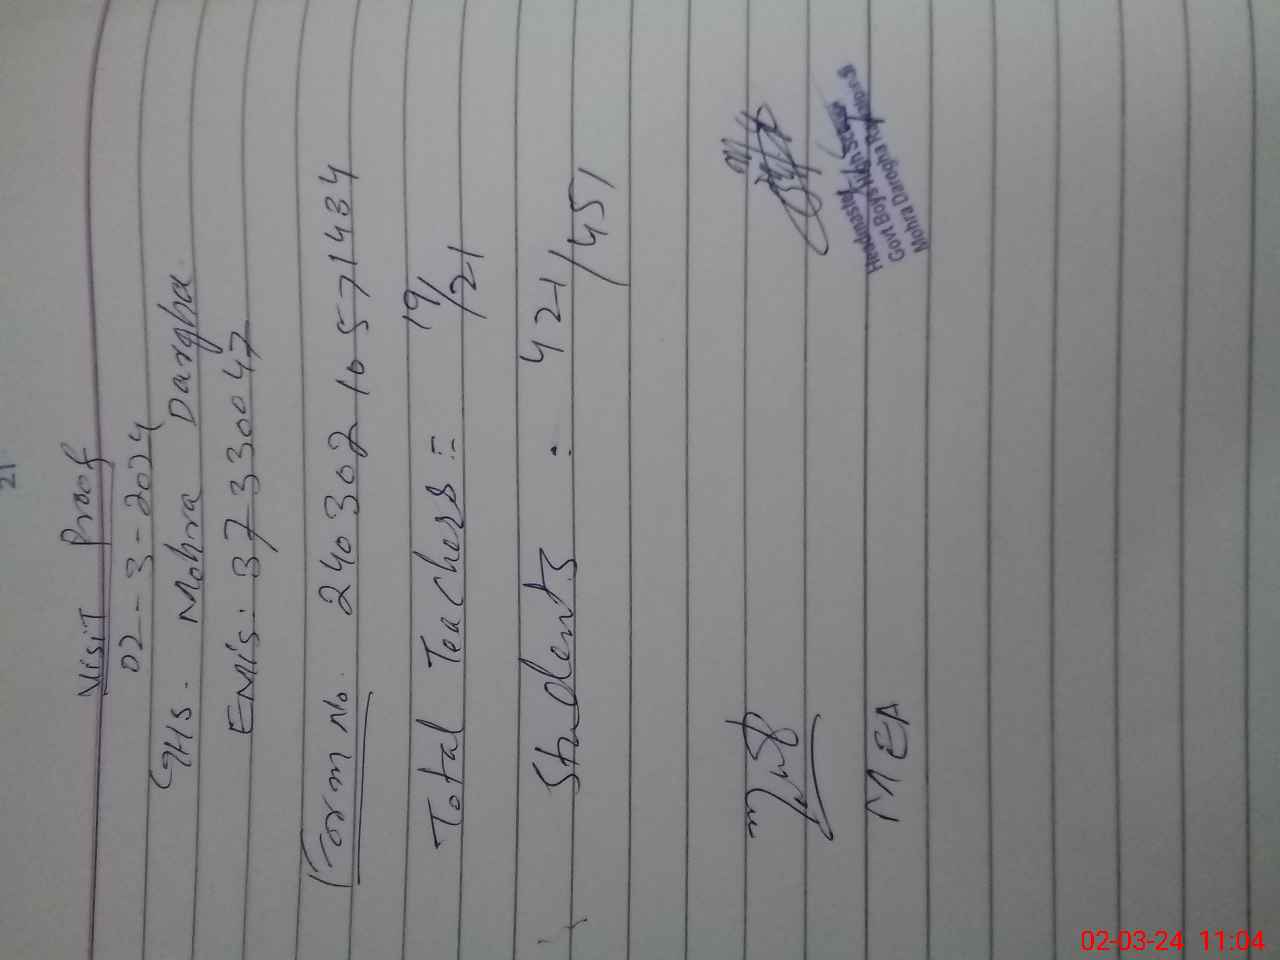 21
Visit Proof
02-3-2024
GHS. Mohra Dargha.
EMIS: 37330047
Form No. 24030210571434
Total Teachers = 19/21
Students : 421/451
MEA
Headmaster
Govt Boys High School
Mohra Darogha Rawalpindi
02-03-24 11:04